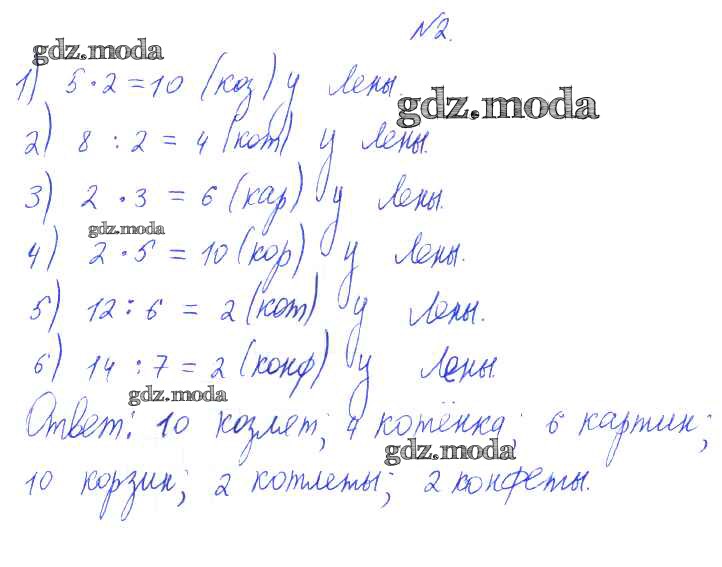 №2.
gdz.moda
1) 5·2=10 (коз) у Лены.
gdz.moda
2) 8 : 2 = 4 (кот) у Лены.
3) 2 · 3 = 6 (кар) у Лены.
gdz.moda
4) 2 · 5 = 10 (кор) у Лены.
5) 12 : 6 = 2 (кот) у Лены.
6) 14 : 7 = 2 (конф) у Лены.
gdz.moda
Ответ: 10 козлят; 4 котёнка; 6 картин;
gdz.moda
10 корзин; 2 котлеты; 2 конфеты.